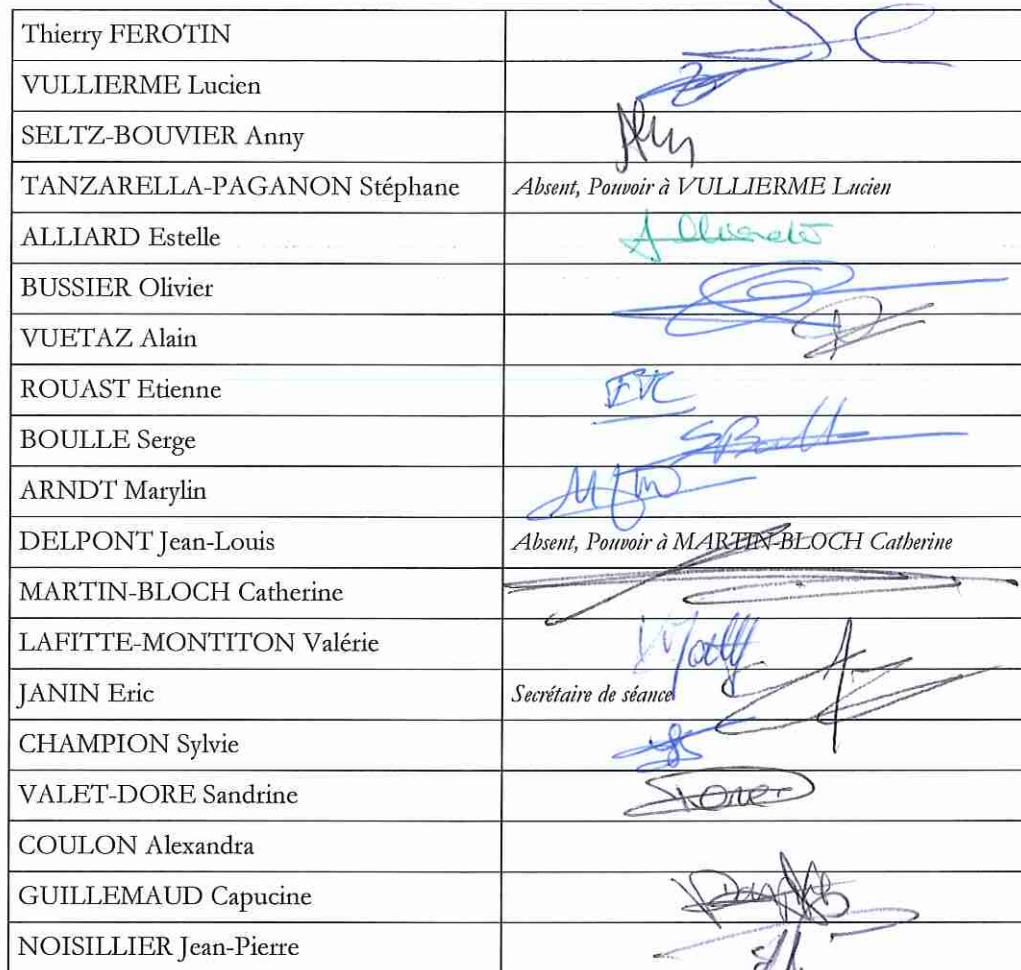 Thierry FEROTIN
VULLIERME Lucien
SELTZ-BOUVIER Anny
TANZARELLA-PAGANON Stéphane Absent, Pouvoir à VULLIERME Lucien
ALLIARD Estelle
BUSSIER Olivier
VUETAZ Alain
ROUAST Etienne
BOULLE Serge
ARNDT Marylin
DELPONT Jean-Louis Absent, Pouvoir à MARTIN-BLOCH Catherine
MARTIN-BLOCH Catherine
LAFITTE-MONTITON Valérie
JANIN Eric Secrétaire de séance
CHAMPION Sylvie
VALET-DORE Sandrine
COULON Alexandra
GUILLEMAUD Capucine
NOISILLIER Jean-Pierre